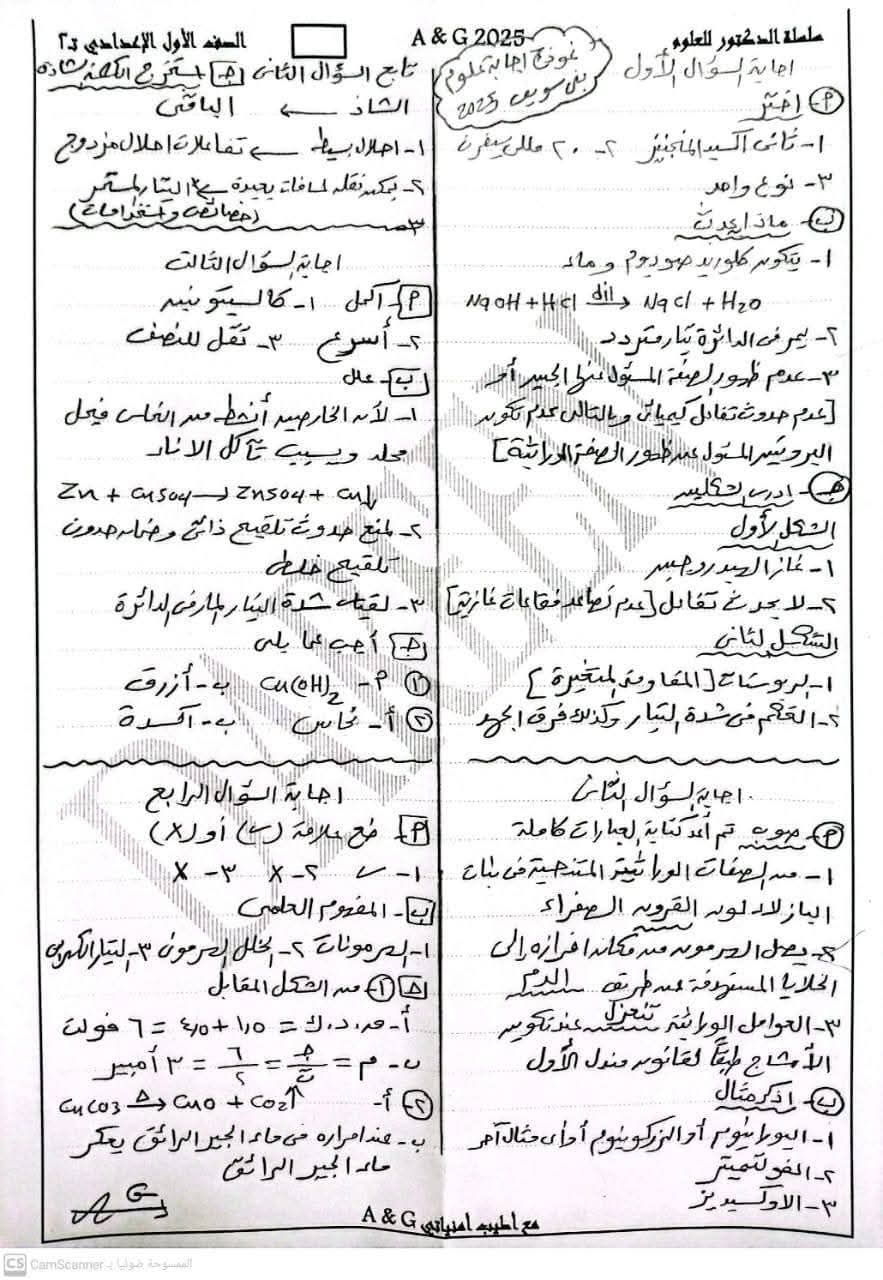 سلسلة الدكتور للعلوم
A & G 2025
الصف الأول الإعدادي ت٢
نموذج اجابة علوم
بنى سويف 2025
اجابة السؤال الأول
(P) اختر
١- ثانى اكسيد المنجنيز ٢- ٢٠ مللى سيفرت
٣- نوع واحد
(ب) ماذا يحدث
١- يتكون كلوريد صوديوم وماء
NaOH + HCl dil→ NaCl + H2O
٢- يمر فى الدائرة تيار متردد
٣- عدم ظهور الصفة المسئول عنها الجين أو
[عدم حدوث تفاعل كيميائى وبالتالى عدم تكون
البروتين المسئول عن ظهور الصفة الوراثية]
(جـ) ادرس الشكلين
الشكل الأول
١- غاز الهيدروجين
٢- لا يحدث تفاعل [عدم تصاعد فقاعات غازية]
الشكل الثانى
١- الريوستات [المقاومة المتغيرة]
٢- التحكم فى شدة التيار وكذلك فرق الجهد
اجابة السؤال الثانى
(P) صوب ثم أعد كتابة العبارات كاملة
١- من الصفات الوراثية المتنحية فى نبات
البازلاء لون القرون الصفراء
٢- يصل الهرمون من مكان افرازه إلى
الخلايا المستهدفة عن طريق الدم
٣- العوامل الوراثية تنعزل عند تكوين
الأمشاج طبقاً لقانون مندل الأول
(ب) اذكر مثال
١- اليورانيوم أو الزركونيوم أو أى مثال آخر
٢- الفولتميتر
٣- الاوكسيديز
تابع السؤال الثانى [جـ] استخرج الكلمة الشاذة
الشاذ ← الباقى
١- احلال بسيط ← تفاعلات احلال مزدوج
٢- يمكن نقله لمسافات بعيدة ← التيار المستمر
(خصائص واستخدامات)
٣-
اجابة السؤال الثالث
[P] أكمل ١- كالسيتونين
٢- أسرع ٣- تقل للنصف
[ب] علل
١- لأن الخارصين أنشط من النحاس فيحل
محله ويسبب تآكل الاناء
Zn + CuSO4 → ZnSO4 + Cu↓
٢- لمنع حدوث تلقيح ذاتى وضمان حدوث
تلقيح خلطى
٣- لقياس شدة التيار المار فى الدائرة
[جـ] أجب عما يلى
(١) P- Cu(OH)2 ب- أزرق
(٢) أ- نحاس ب- اكسدة
اجابة السؤال الرابع
[P] ضع علامة (✓) أو (X)
١- ✓ ٢- X ٣- X
[ب]- المفهوم العلمى
١- الهرمونات ٢- الخلل الهرمونى ٣- التيار الكهربى
[جـ] (١)- من الشكل المقابل
أ- ق.د.ك = ١٫٥ + ٤٫٥ = ٦ فولت
ب- م = جـ/ت = ٦/٢ = ٣ أمبير
(٢)- أ- CuCO3 △→ CuO + CO2↑
ب- عند امراره فى ماء الجير الرائق يعكر
ماء الجير الرائق
A G
مع أطيب امنياتي A & G
CS CamScanner الممسوحة ضوئيا بـ